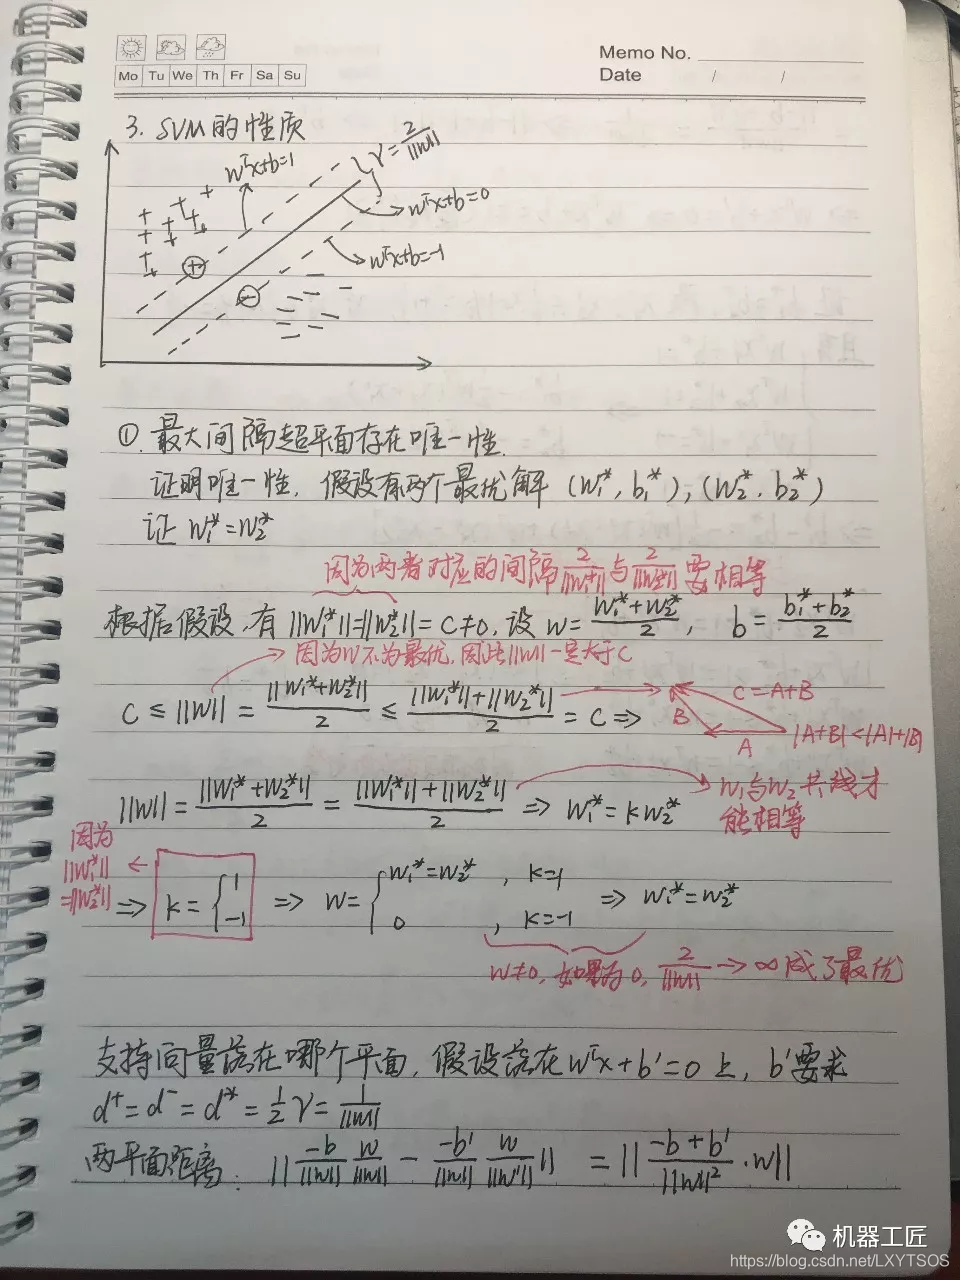 Memo No.
Mo Tu We Th Fr Sa Su
Date / /
3. SVM的性质
wᵀx+b=1
γ=2/||w||
wᵀx+b=0
wᵀx+b=-1
① 最大间隔超平面存在唯一性.
证明唯一性, 假设有两个最优解 (w₁*, b₁*), (w₂*, b₂*)
证 w₁*=w₂*
因为两者对应的间隔 2/||w₁*|| 与 2/||w₂*|| 要相等
根据假设, 有 ||w₁*||=||w₂*||=C≠0, 设 w=(w₁*+w₂*)/2, b=(b₁*+b₂*)/2
因为w不为最优, 因此||w||一定大于C
C ≤ ||w|| = ||w₁*+w₂*||/2 ≤ (||w₁*||+||w₂*||)/2 = C ⇒
C=A+B
B
A
|A+B|<|A|+|B|
||w|| = ||w₁*+w₂*||/2 = (||w₁*||+||w₂*||)/2 ⇒ w₁*=kw₂*
w₁与w₂共线才
能相等
因为
||w₁*||
=||w₂*||
⇒ k={1, -1 ⇒ w={w₁*=w₂*, k=1; 0, k=-1 ⇒ w₁*=w₂*
w≠0, 如果为0, 2/||w|| → ∞ 成了最优
支持向量落在哪个平面, 假设落在wᵀx+b'=0上, b'要求
d⁺=d⁻=d*=½γ=1/||w||
两平面距离: ||-b/||w|| w/||w|| - -b'/||w|| w/||w'|| || = ||(-b+b')/||w||²·w||
机器工匠
https://blog.csdn.net/LXYTSOS